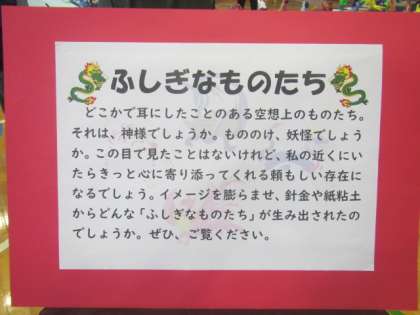 ふしぎなものたち
どこかで耳にしたことのある空想上のものたち。
それは、神様でしょうか。もののけ、妖怪でしょう
か。この目で見たことはないけれど、私の近くにい
たらきっと心に寄り添ってくれる頼もしい存在に
なるでしょう。イメージを膨らませ、針金や紙粘土
からどんな「ふしぎなものたち」が生み出されたの
でしょうか。ぜひ、ご覧ください。